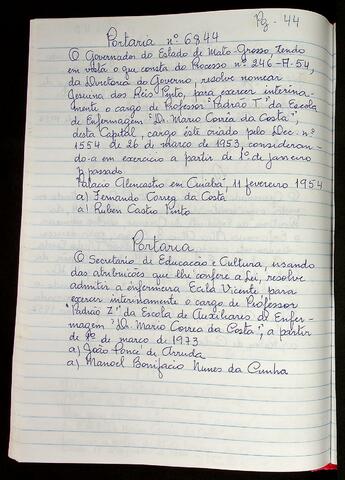 Pg - 44
Portaria nº 6844
O Governador do Estado de Mato-Grosso tendo
em vista o que consta do Processo nº 246-A-54,
da Diretoria do Governo, resolve nomear
Jesuina dos Reis Pinto, para exercer interina-
mente o cargo de Professor "Padrão T" da Escola
de Enfermagem "Dr. Mario Corrêa da Costa",
desta Capital, cargo êste criado pelo Dec. nº
1554 de 26 de março de 1953, consideran-
do-a em exercício a partir de 1º de janeiro
p. passado.
Palacio Alencastro em Cuiabá, 11 fevereiro 1954
a) Fernando Correa da Costa
a) Ruben Castro Pinto
Portaria
O Secretario de Educação e Cultura, usando
das atribuições que lhe confere a Lei, resolve
admitir a enfermeira Ecila Vicente para
exercer interinamente o cargo de Professor
"Padrão Z" da Escola de Auxiliares de Enfer-
magem "Dr. Mario Correa da Costa", a partir
de 1º de março de 1973
a) João Ponce de Arruda
a) Manoel Bonifacio Nunes da Cunha